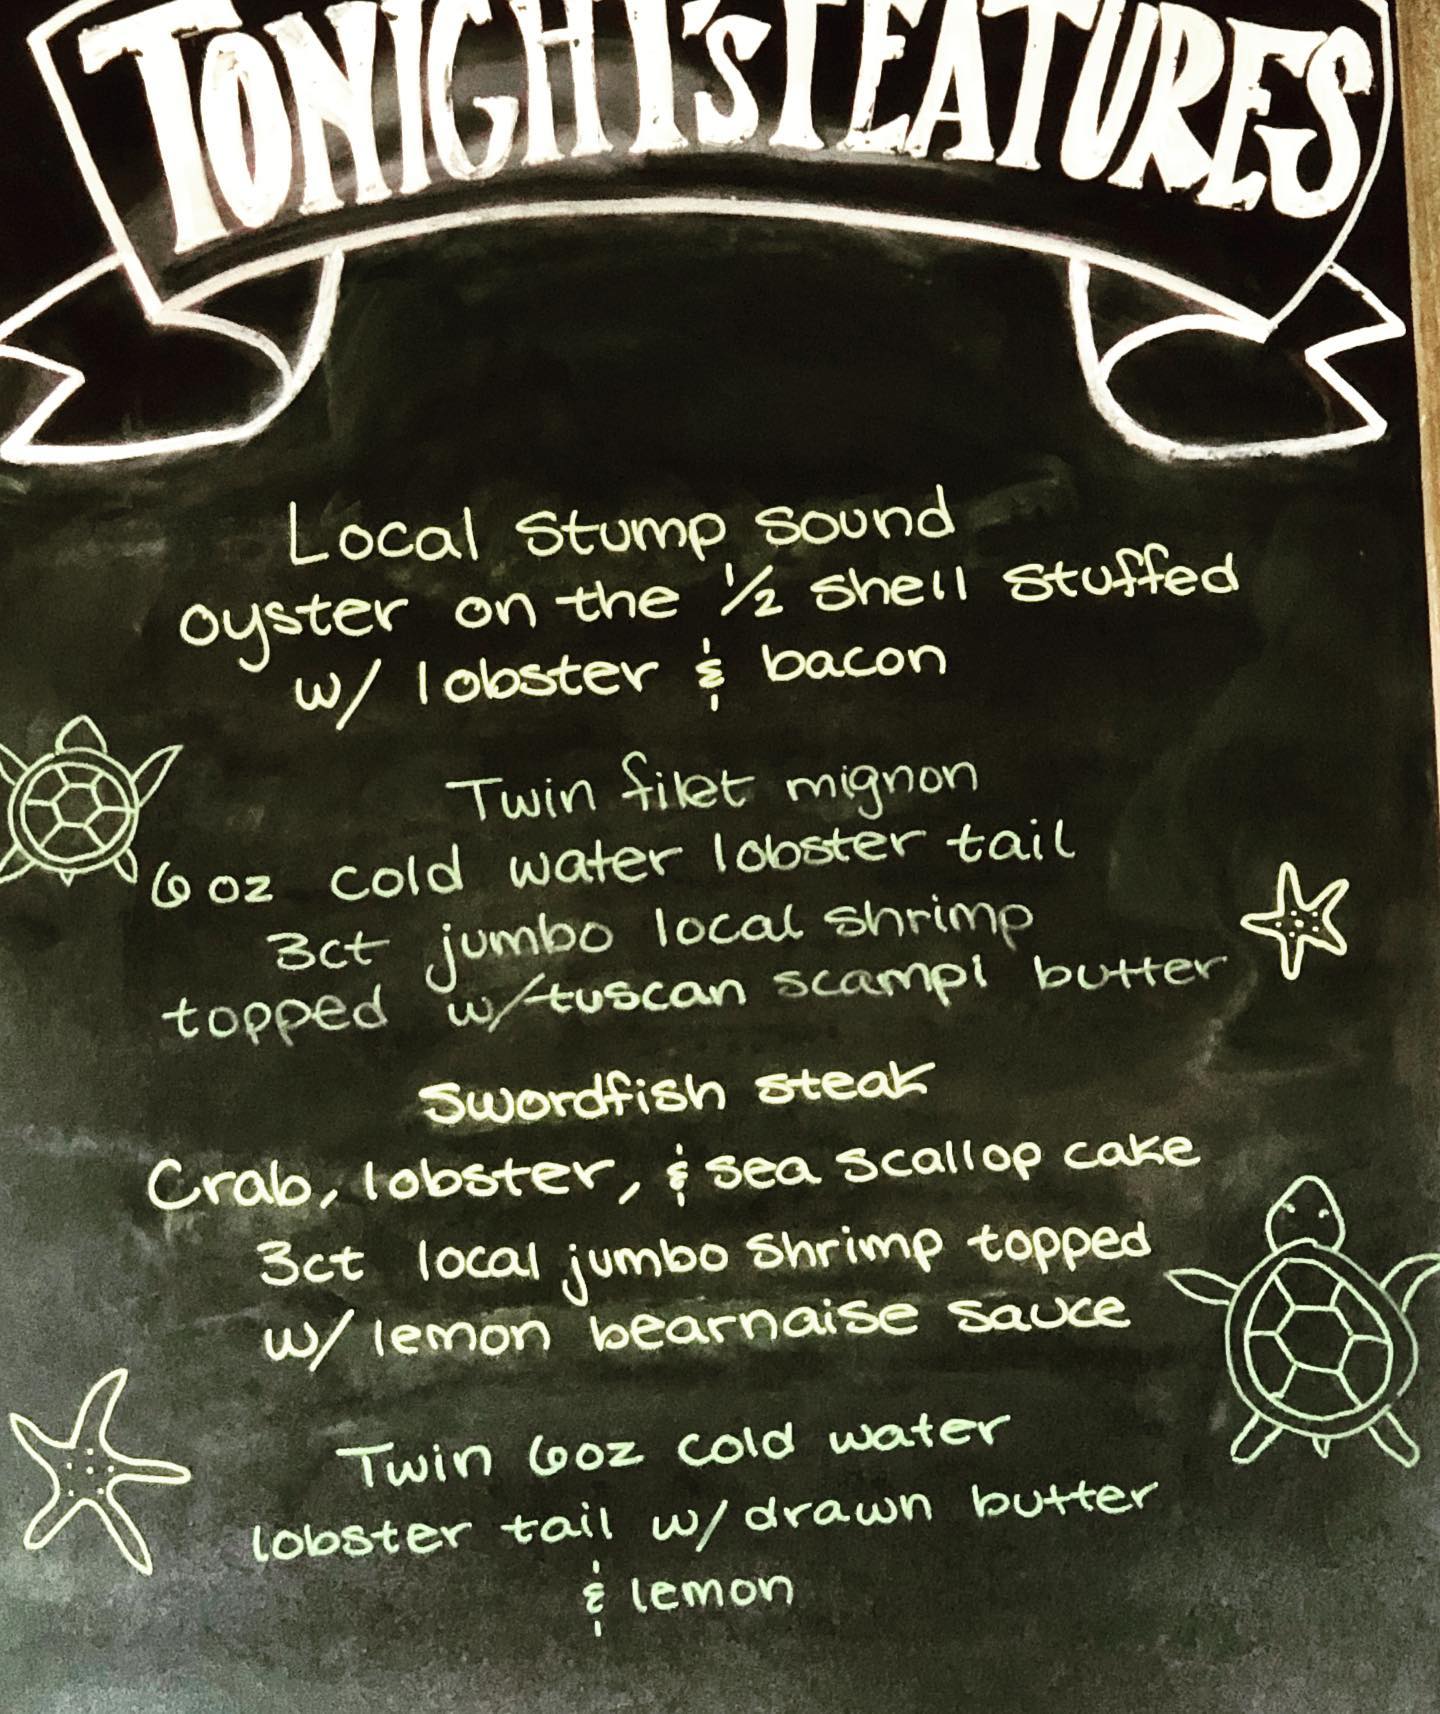 TONIGHT'S FEATURES
Local Stump Sound
oyster on the 1/2 shell stuffed
w/ lobster & bacon
Twin filet mignon
6oz cold water lobster tail
3ct jumbo local shrimp
topped w/tuscan scampi butter
Swordfish steak
Crab, lobster, & sea scallop cake
3ct local jumbo shrimp topped
w/ lemon bearnaise sauce
Twin 6oz cold water
lobster tail w/ drawn butter
& lemon